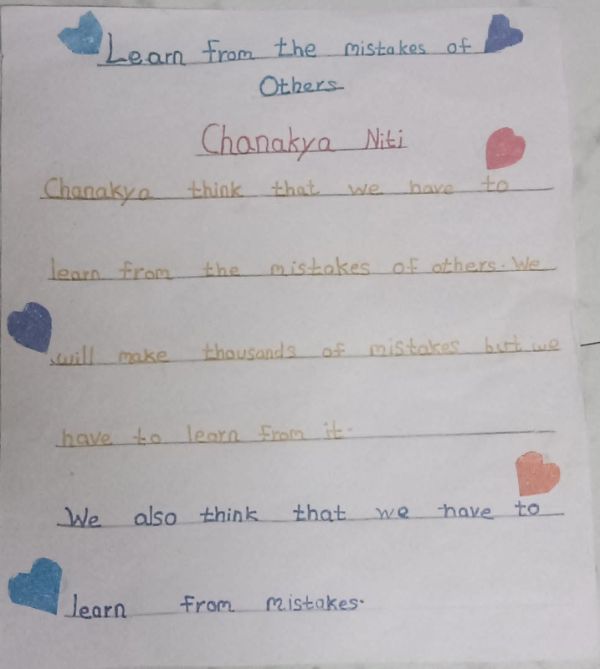 Learn from the mistakes of
Others
Chanakya Niti
Chanakya think that we have to
learn from the mistakes of others. We
will make thousands of mistakes but we
have to learn from it.
We also think that we have to
learn from mistakes.